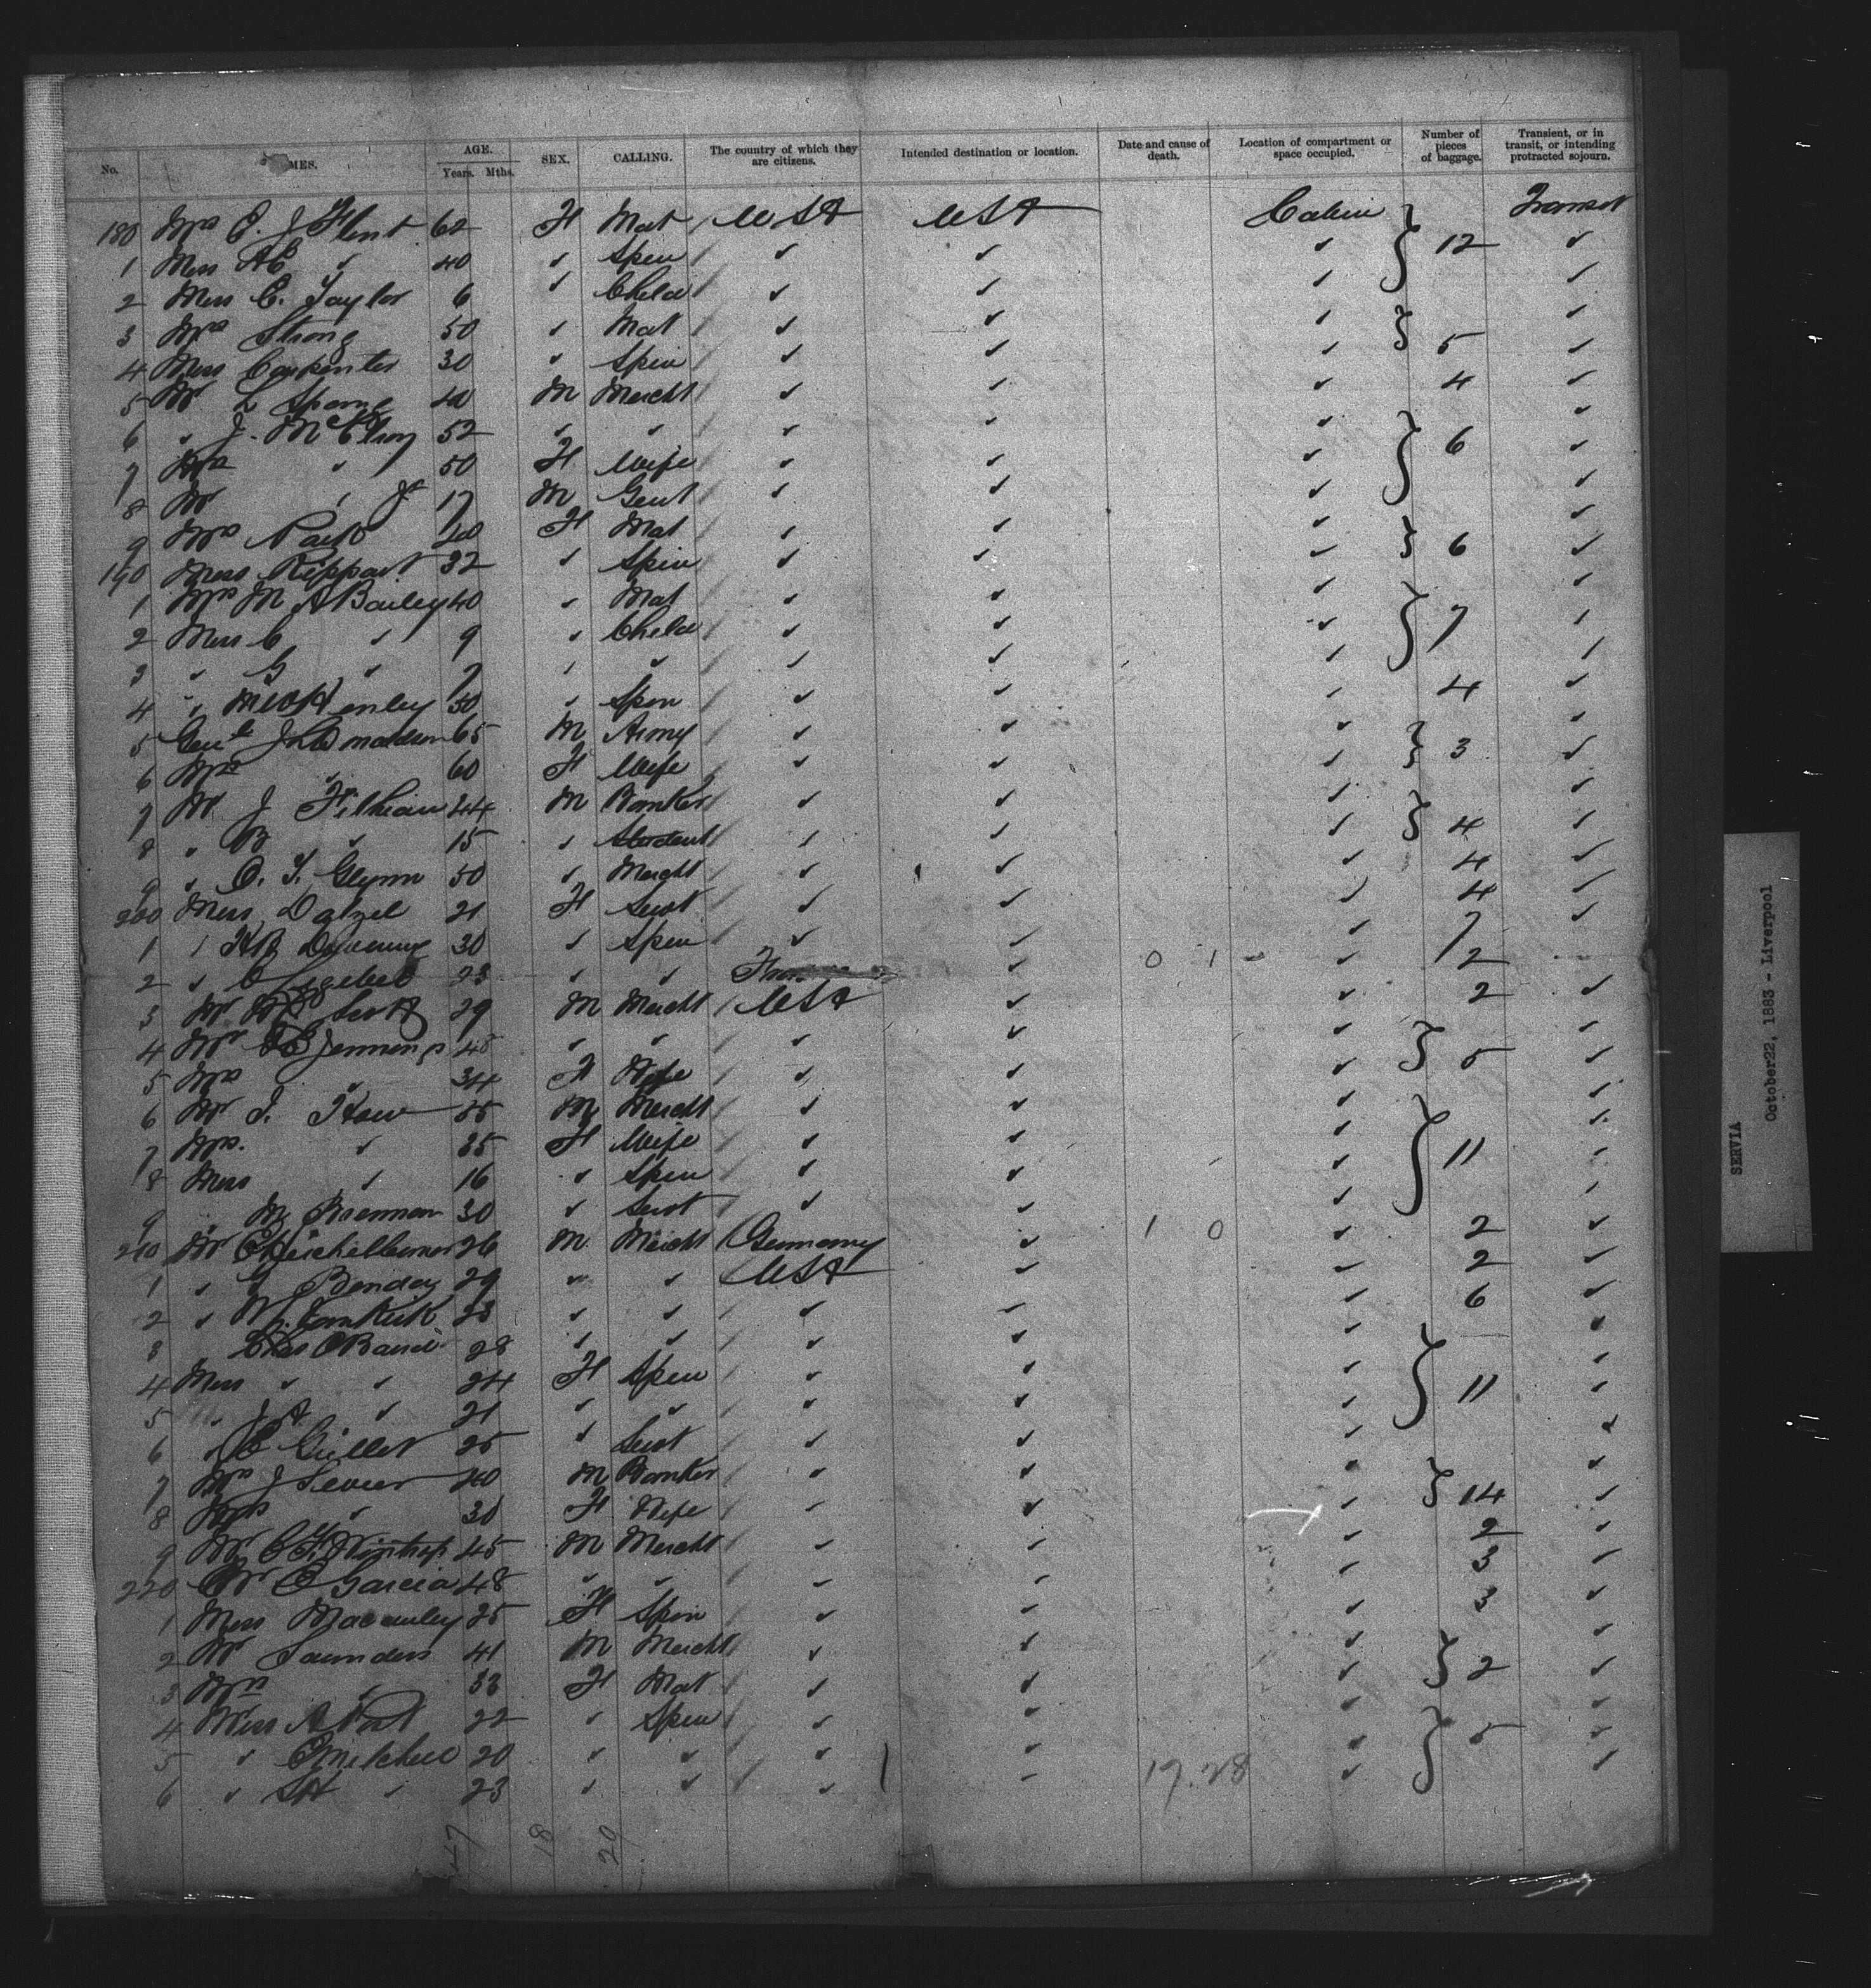 No. | NAMES. | AGE. Years. Mths. | SEX. | CALLING. | The country of which they are citizens. | Intended destination or location. | Date and cause of death. | Location of compartment or space occupied. | Number of pieces of baggage. | Transient, or in transit, or intending protracted sojourn.
180 Mrs E. J Flint 62 F Mat USA USA Cabin Transit
1 Miss AE " 40 " Spin ✓ ✓ ✓ 12 ✓
2 Miss E. Taylor 6 ✓ Child ✓ ✓ ✓ ✓
3 Mrs Strong 50 ✓ Mat ✓ ✓ ✓ ✓
4 Miss Carpenter 30 ✓ Spin ✓ ✓ ✓ 5 ✓
5 Mr L 40 M Mercht ✓ ✓ ✓ 4 ✓
6 " J. McElroy 52 ✓ ✓ ✓ ✓ ✓ 6 ✓
7 Mrs " 50 F Wife ✓ ✓ ✓ ✓
8 Mr " Jr 17 M Gent ✓ ✓ ✓ ✓
9 Mrs 40 F Mat ✓ ✓ ✓ 6 ✓
190 Miss Rippart 32 ✓ Spin ✓ ✓ ✓ ✓
1 Mrs M A Bailey 40 ✓ Mat ✓ ✓ ✓ ✓
2 Miss C " 9 ✓ Child ✓ ✓ ✓ 7 ✓
3 " G " 7 ✓ ✓ ✓ ✓ ✓ ✓
4 " Henley 30 ✓ Spin ✓ ✓ ✓ 4 ✓
5 Genl 65 M Army ✓ ✓ ✓ 3 ✓
6 Mrs " 60 F Wife ✓ ✓ ✓ ✓
7 Mr J Filhian 44 M Banker ✓ ✓ ✓ ✓
8 " B " 15 ✓ Student ✓ ✓ ✓ 4 ✓
9 " C. T. Glynn 50 ✓ Mercht ✓ ✓ ✓ 4 ✓
200 Miss Dalzel 21 F Servt ✓ ✓ ✓ 4 ✓
1 " KB 30 ✓ Spin ✓ ✓ ✓ 7 ✓
2 " C 23 ✓ ✓ ✓ 0 1 ✓ 2
3 Mr Scott 29 M Mercht USA ✓ ✓ 2 ✓
4 Mr Jennings 48 ✓ ✓ ✓ ✓ ✓ 5 ✓
5 Mrs " 34 F Wife ✓ ✓ ✓ ✓
6 Mr J. Kaw M Mercht ✓ ✓ ✓ ✓
7 Mrs. " 35 F Wife ✓ ✓ ✓ 11 ✓
8 Miss " 16 ✓ Spin ✓ ✓ ✓ ✓
9 M Brennan 30 ✓ Servt ✓ ✓ ✓ ✓
210 Mr C Heichelbemer 26 M Mercht Germany ✓ 1 0 ✓ 2 ✓
1 " G Benday 29 ✓ ✓ USA ✓ ✓ 2 ✓
2 " 23 ✓ ✓ ✓ ✓ ✓ 6 ✓
3 Chas 28 ✓ ✓ ✓ ✓ ✓ ✓
4 Miss " " 24 F Spin ✓ ✓ ✓ 11 ✓
5 " J A " 21 ✓ ✓ ✓ ✓ ✓ ✓
6 " E Gillet 25 ✓ Servt ✓ ✓ ✓ ✓
7 Mr J Sevier 40 M Banker ✓ ✓ ✓ 14 ✓
8 Mrs " 30 F Wife ✓ ✓ ✓ ✓
9 Mr C F Wintrop 45 M Mercht ✓ ✓ ✓ 2 ✓
220 Mr E Garcia 48 ✓ ✓ ✓ ✓ ✓ 3 ✓
1 Miss Macauley 25 F Spin ✓ ✓ ✓ 3 ✓
2 Mr Saunders 41 M Mercht ✓ ✓ ✓ 2 ✓
3 Mrs " 33 F Mat ✓ ✓ ✓ ✓
4 Miss A Post 22 ✓ Spin ✓ ✓ ✓ 5 ✓
5 " E Mitchell 20 ✓ ✓ ✓ ✓ ✓ ✓
6 " SH " 23 ✓ ✓ ✓ ✓ 19.28 ✓ ✓
47 18 29
SERVIA
October 22, 1883 - Liverpool